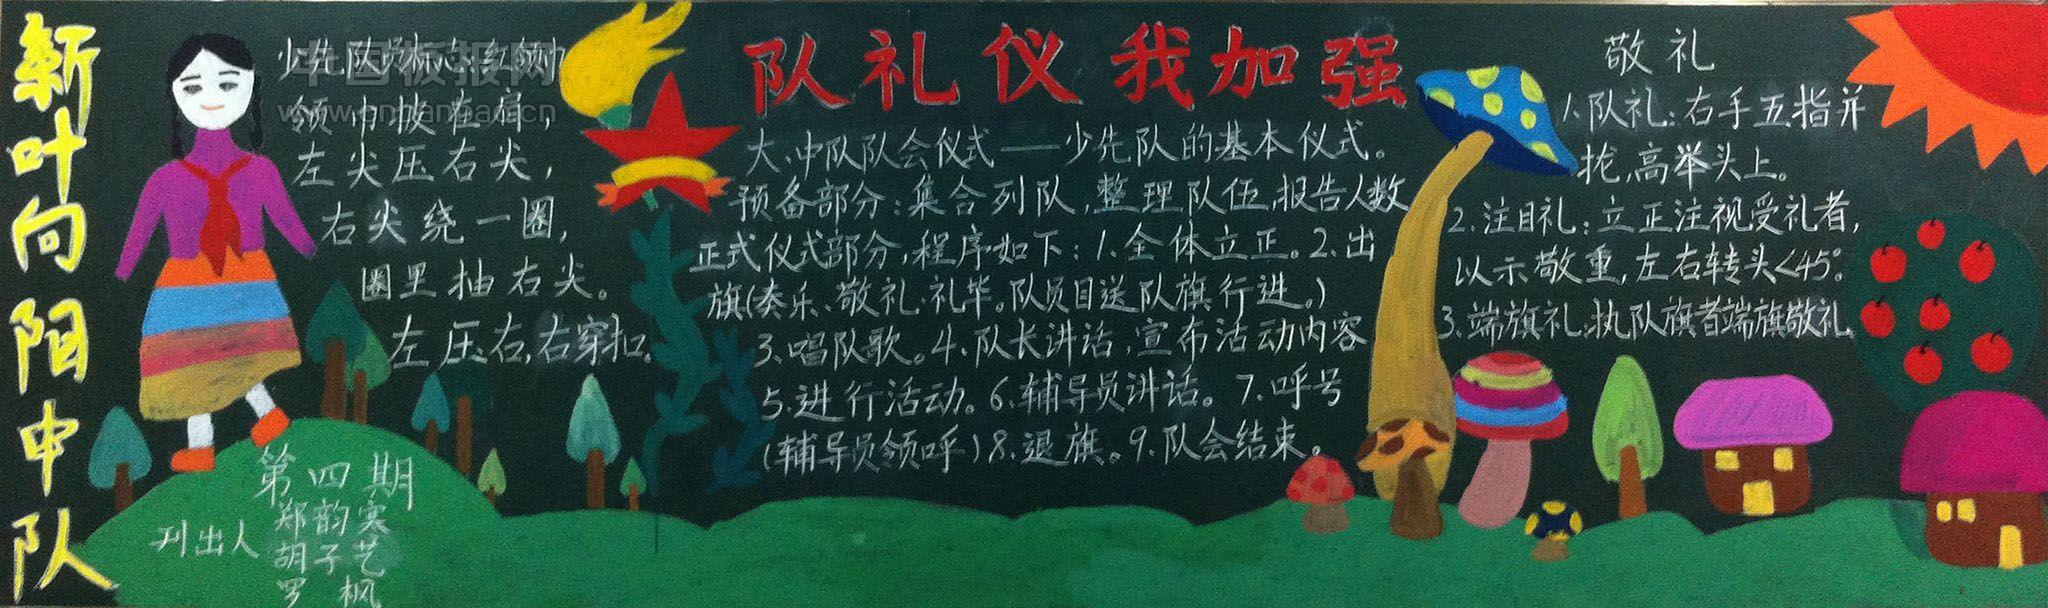 新叶向阳中队
少先队员标志:红领巾
领巾披在肩，
左尖压右尖，
右尖绕一圈，
圈里抽右尖。
左压右,右穿扣。
中国板报网
www.cnbanbao.cn
队礼仪我加强
大、中队队会仪式——少先队的基本仪式。
预备部分:集合列队,整理队伍,报告人数
正式仪式部分,程序如下:1.全体立正。2.出
旗(奏乐、敬礼、礼毕。队员目送队旗行进。)
3.唱队歌。4.队长讲话,宣布活动内容
5.进行活动。6.辅导员讲话。7.呼号
(辅导员领呼)8.退旗。9.队会结束。
敬礼
1.队礼:右手五指并
拢,高举头上。
2.注目礼:立正注视受礼者,
以示敬重,左右转头<45°。
3.端旗礼:执队旗者端旗敬礼。
第四期
刊出人
郑韵寒
胡子艺
罗枫